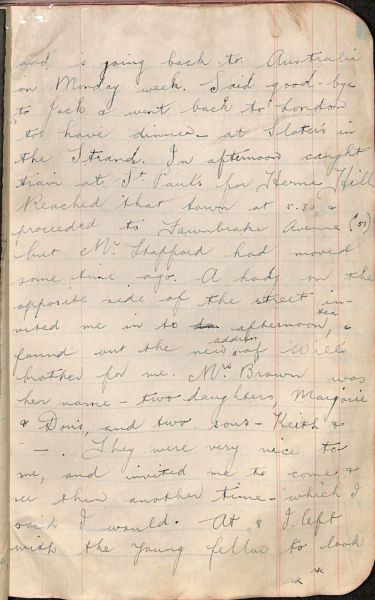 and is going back to Australia
on Monday week. Said good-bye
to Jack & went back to London
to have dinner - at Slaters in
the Strand. In afternoon caught
train at St. Pauls for Herne Hill
Reached that town at 5.30, &
proceeded to Fawnbrake Avenue (81)
but Mr Stafford had moved
some time ago. A lady on the
opposite side of the street in-
vited me in to afternoon tea, &
found out the new address of Wills
brother for me. Mrs Brown was
her name - two daughters, Marjorie
& Doris, and two sons - Keith &
— . They were very nice to
me, and invited me to come &
see them another time - which I
said I would. At 8 I left
with the young fellow to look